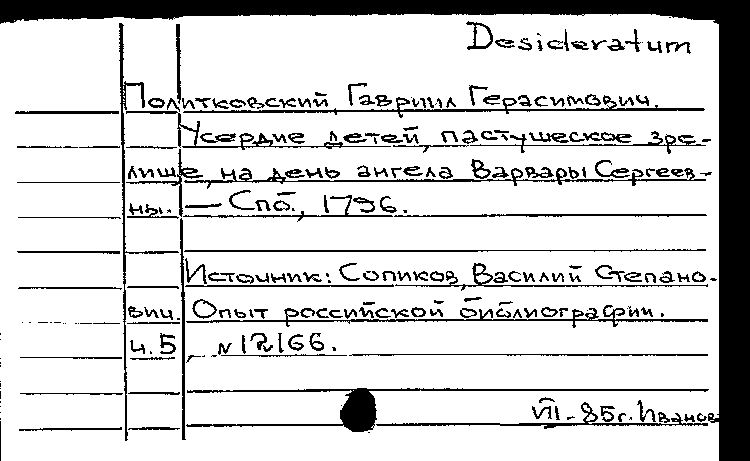 Desideratum
Политковский, Гавриил Герасимович.
Усердие детей, пастушеское зре-
лище, на день ангела Варвары Сергеев-
ны. — Спб., 1796.
Источник: Сопиков, Василий Степано-
вич. Опыт российской библиографии.
ч. 5, № 12166.
VII - 85 г. Иванова